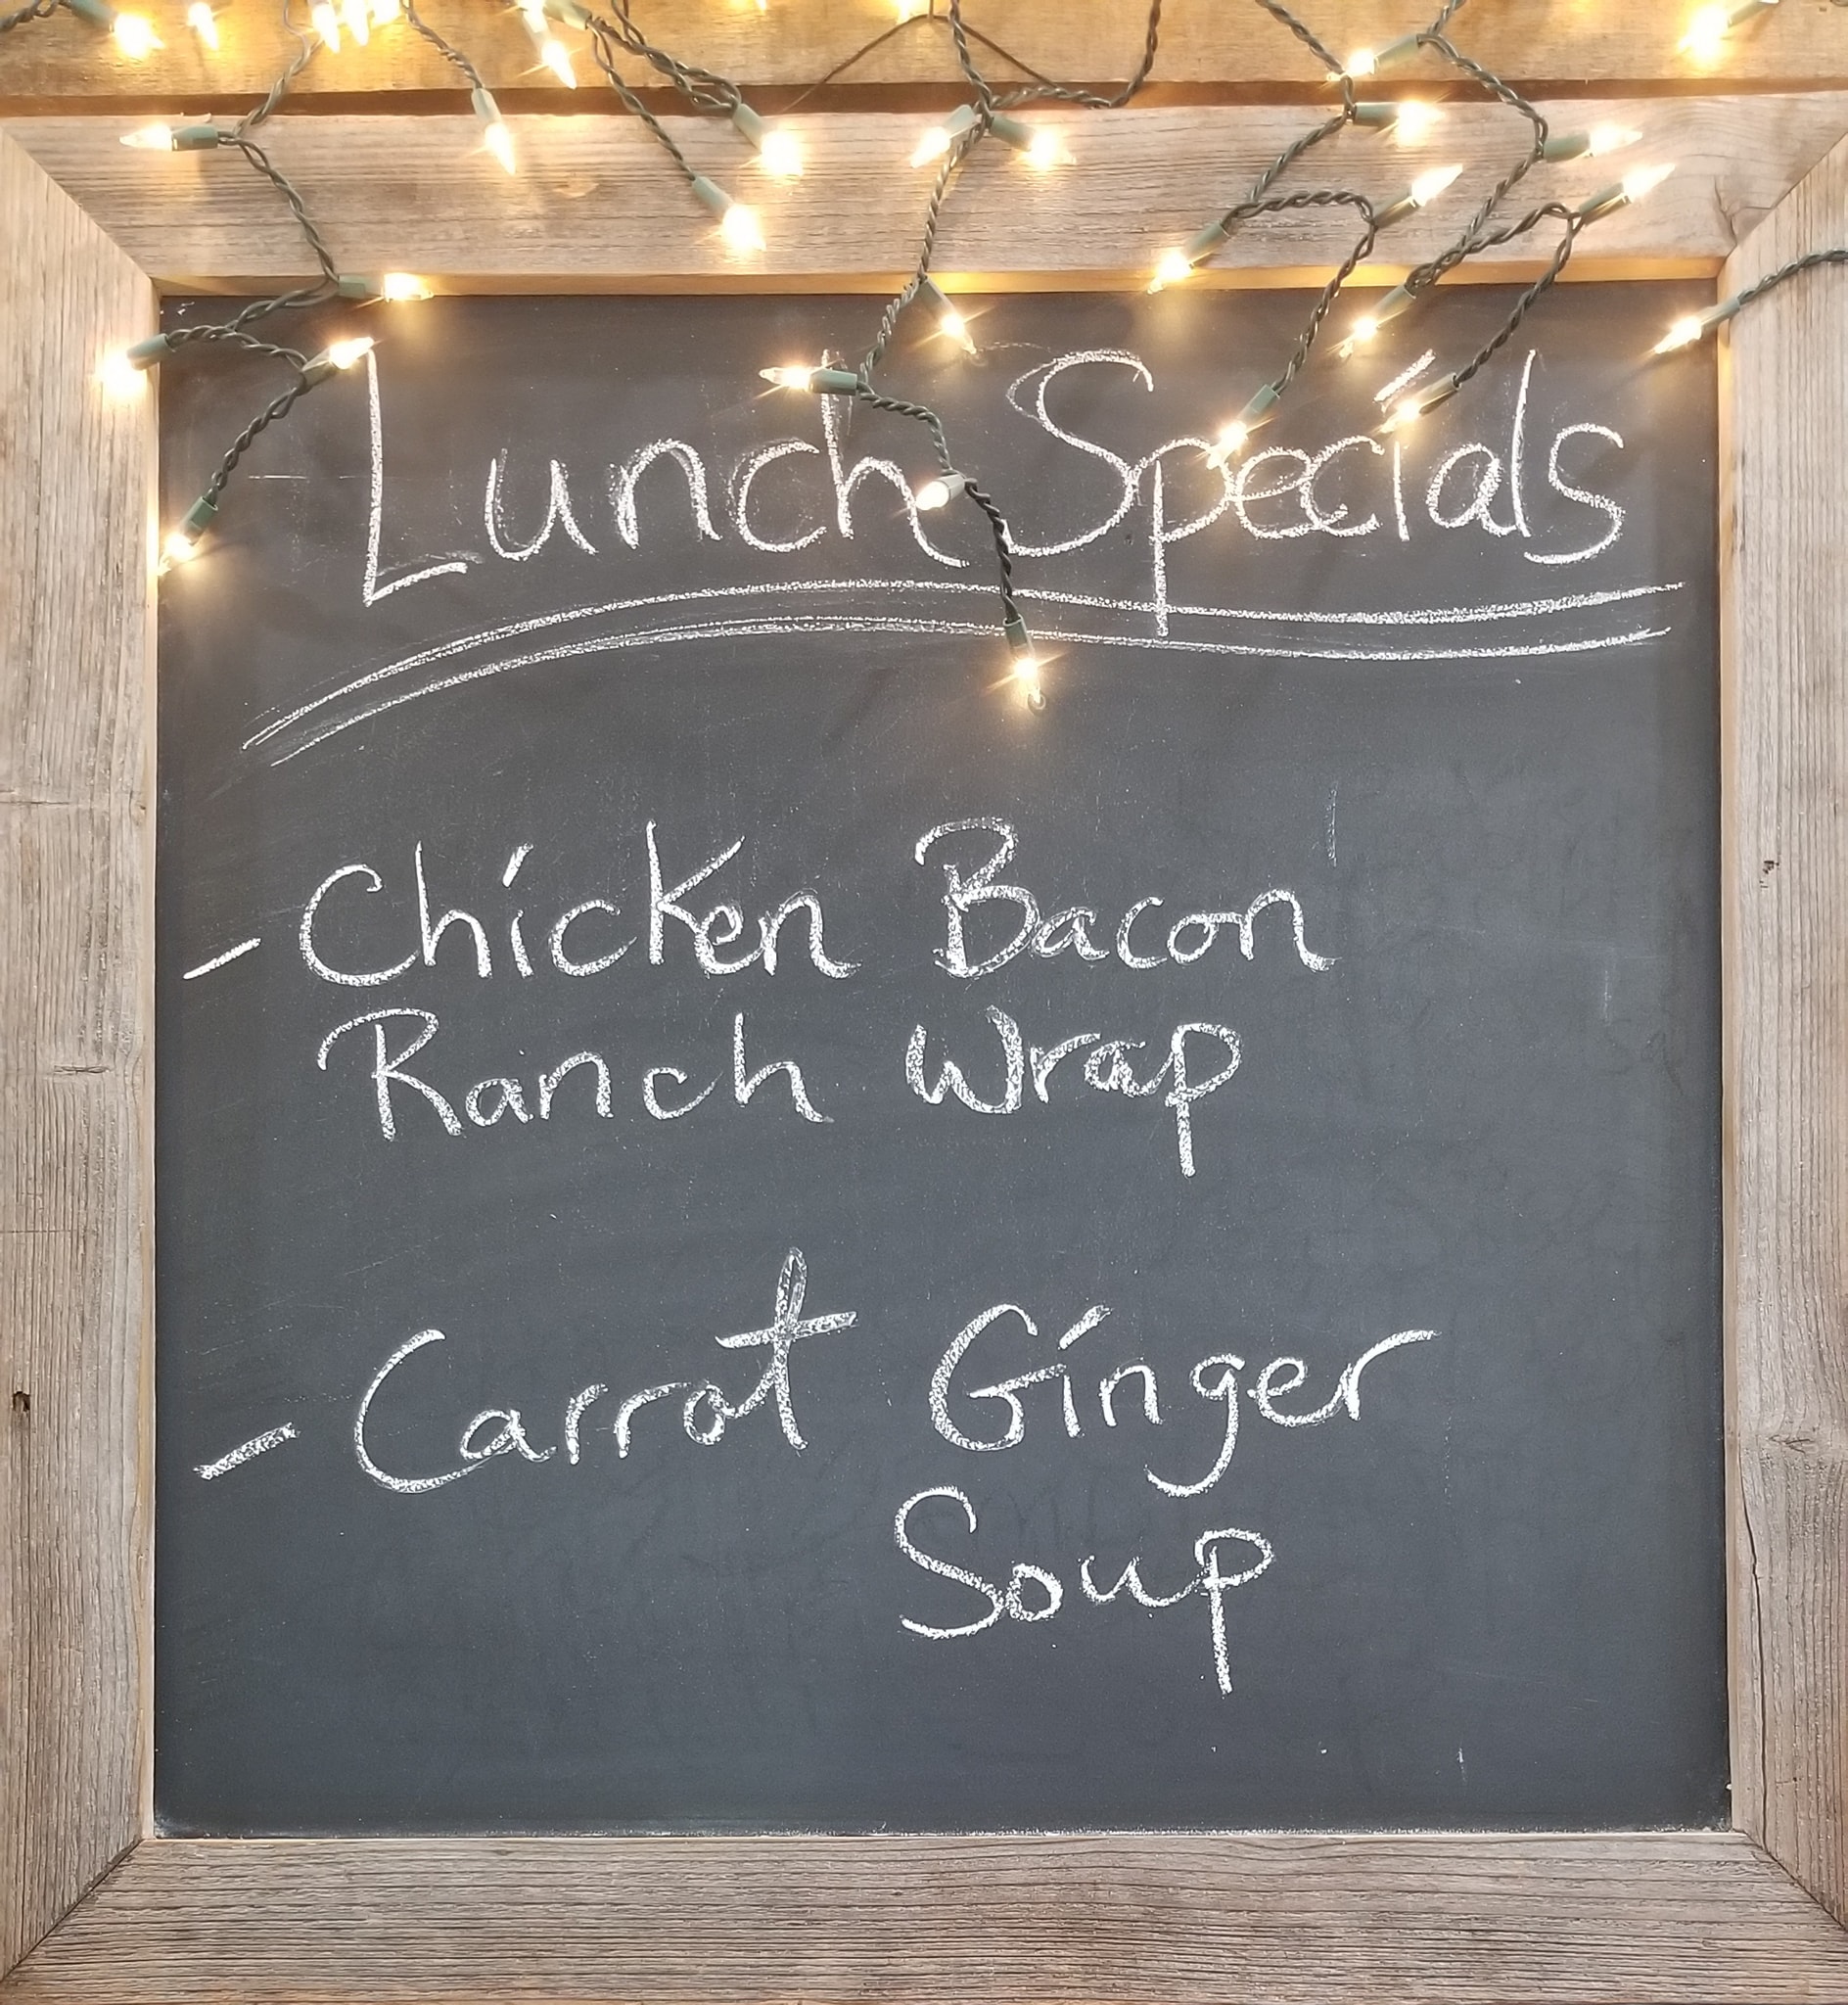 Lunch Specials
- Chicken Bacon
Ranch Wrap
- Carrot Ginger
Soup